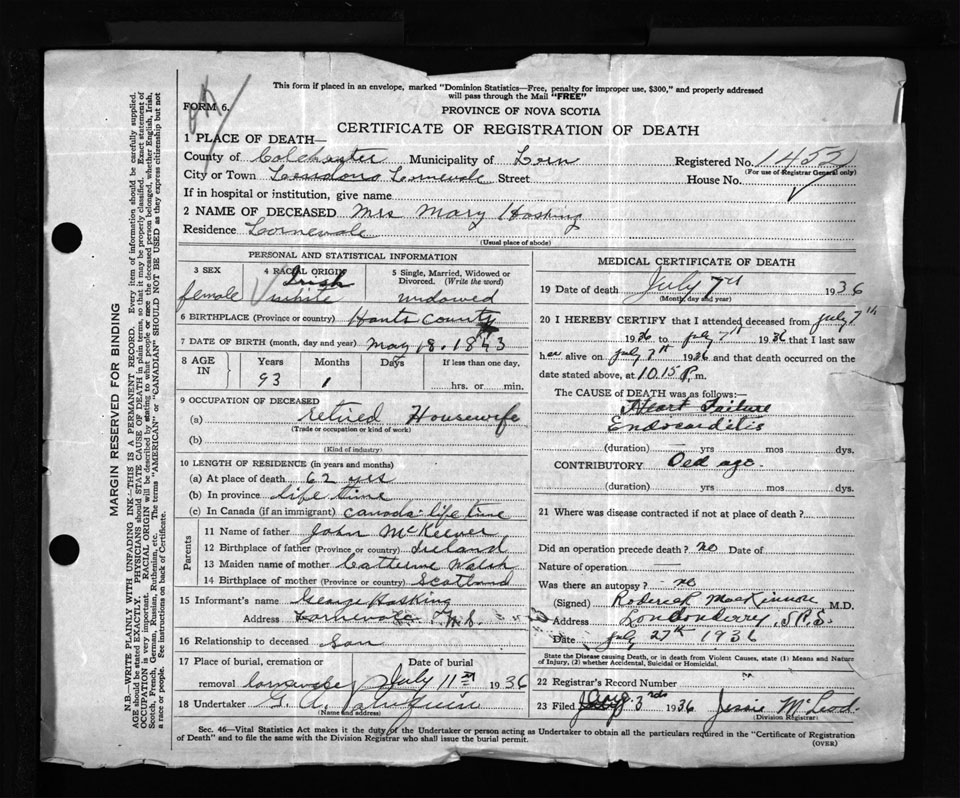 This form if placed in an envelope, marked "Dominion Statistics—Free, penalty for improper use, $300," and properly addressed
will pass through the Mail "FREE"
FORM 6.
PROVINCE OF NOVA SCOTIA
CERTIFICATE OF REGISTRATION OF DEATH
1 PLACE OF DEATH—
County of Colchester Municipality of Registered No. 1457
(For use of Registrar General only)
City or Town Street House No.
If in hospital or institution, give name
2 NAME OF DECEASED Mrs Mary Hosking
Residence
(Usual place of abode)
PERSONAL AND STATISTICAL INFORMATION
3 SEX
female
4 RACIAL ORIGIN
Irish
white
5 Single, Married, Widowed or
Divorced. (Write the word)
widowed
6 BIRTHPLACE (Province or country) Hants County
7 DATE OF BIRTH (month, day and year) May 18. 1843
8 AGE IN
Years Months Days If less than one day.
93 1 hrs. or min.
9 OCCUPATION OF DECEASED
(a) retired Housewife
(Trade or occupation or kind of work)
(b)
(Kind of industry)
10 LENGTH OF RESIDENCE (in years and months)
(a) At place of death 62 yrs
(b) In province life time
(c) In Canada (if an immigrant) Canada life time
Parents
11 Name of father John McKeever
12 Birthplace of father (Province or country) Ireland
13 Maiden name of mother Catherine Walsh
14 Birthplace of mother (Province or country) Scotland
15 Informant's name George Hosking
Address
16 Relationship to deceased Son
17 Place of burial, cremation or Date of burial
removal July 11 1936
18 Undertaker G. A.
(Name and address)
MEDICAL CERTIFICATE OF DEATH
19 Date of death July 7th 1936
(Month, day and year)
20 I HEREBY CERTIFY that I attended deceased from July 7th
1936 to July 7th 1936 that I last saw
her alive on July 7th 1936 and that death occurred on the
date stated above, at 10.15 P. m.
The CAUSE OF DEATH was as follows:—
Heart Failure
Endocarditis
(duration) yrs mos. dys.
CONTRIBUTORY Old age.
(duration) yrs mos. dys.
21 Where was disease contracted if not at place of death?
Did an operation precede death? no Date of
Nature of operation —
Was there an autopsy? no
(Signed) Roderick MacKinnon M.D.
Address Londonderry,
Date July 27th 1936
State the Disease causing Death, or in death from Violent Causes, state (1) Means and Nature
of Injury, (2) whether Accidental, Suicidal or Homicidal.
22 Registered Record Number
23 Filed Aug. 3rd 1936 Jessie McLeod
(Division Registrar)
Sec. 46—Vital Statistics Act makes it the duty of the Undertaker or person acting as Undertaker to obtain all the particulars required in the "Certificate of Registration
of Death" and to file the same with the Division Registrar who shall issue the burial permit.
(OVER)
MARGIN RESERVED FOR BINDING
N.B.—WRITE PLAINLY WITH UNFADING INK—THIS IS A PERMANENT RECORD. Every item of information should be carefully supplied.
AGE should be stated EXACTLY. PHYSICIANS should STATE CAUSE OF DEATH in plain terms, so that it may be properly classified. Exact statement of
OCCUPATION is very important. RACIAL ORIGIN will be described by stating to what people or race the deceased person belonged, whether English, Irish,
Scotch, French, German, Russian, Ruthenian, etc. The terms "AMERICAN" or "CANADIAN" SHOULD NOT BE USED as they express citizenship but not
a race or people. See instructions on back of Certificate.